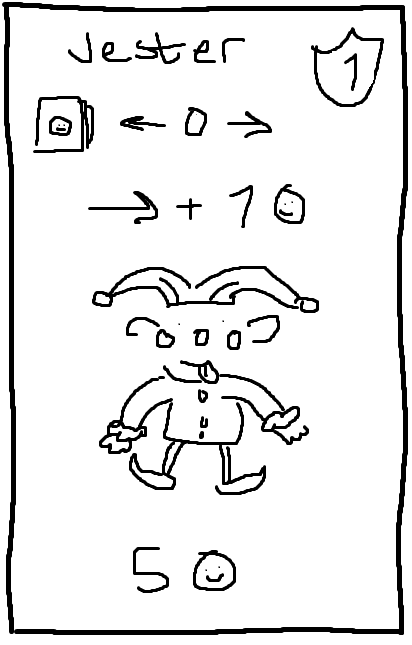 Jester
1
← 0 →
→ + 1
5